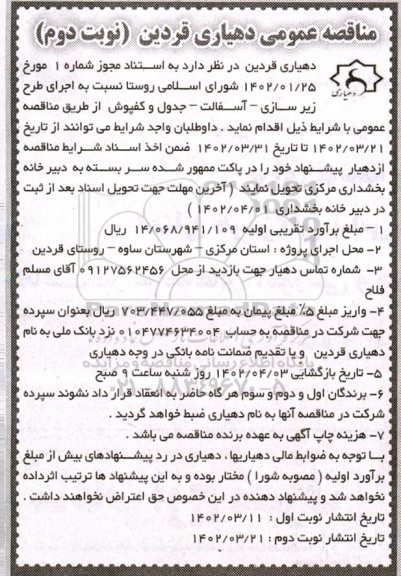 مناقصه عمومی دهیاری قردین (نوبت دوم)
دهیاری قردین در نظر دارد به استناد مجوز شماره ۱ مورخ
۱۴۰۲/۰۱/۲۵ شورای اسلامی روستا نسبت به اجرای طرح
زیر سازی – آسفالت – جدول و کفپوش از طریق مناقصه
دهیاری
عمومی با شرایط ذیل اقدام نماید . داوطلبان واجد شرایط می توانند از تاریخ
۱۴۰۲/۰۳/۲۱ تا تاریخ ۱۴۰۲/۰۳/۳۱ ضمن اخذ اسناد شرایط مناقصه
ازدهیار پیشنهاد خود را در پاکت ممهور شده سر بسته به دبیر خانه
بخشداری مرکزی تحویل نمایند ( آخرین مهلت جهت تحویل اسناد بعد از ثبت
در دبیر خانه بخشداری ۱۴۰۲/۰۴/۰۱ )
۱ – مبلغ برآورد تقریبی اولیه ۱۴/۰۶۸/۹۴۱/۱۰۹ ریال
۲– محل اجرای پروژه : استان مرکزی – شهرستان ساوه – روستای قردین
۳– شماره تماس دهیار جهت بازدید از محل ۰۹۱۲۷۵۶۲۴۵۶ آقای مسلم
فلاح
۴– واریز مبلغ ۵٪ مبلغ پیمان به مبلغ ۷۰۳/۴۴۷/۰۵۵ ریال بعنوان سپرده
جهت شرکت در مناقصه به حساب ۰۱۰۴۷۷۴۶۳۴۰۰۴ نزد بانک ملی به نام
دهیاری قردین و یا تقدیم ضمانت نامه بانکی در وجه دهیاری
۵– تاریخ بازگشایی ۱۴۰۲/۰۴/۰۳ روز شنبه ساعت ۹ صبح
۶– برندگان اول و دوم و سوم هر گاه حاضر به انعقاد قرار داد نشوند سپرده
شرکت در مناقصه آنها به نام دهیاری ضبط خواهد گردید .
۷– هزینه چاپ آگهی به عهده برنده مناقصه می باشد .
با توجه به ضوابط مالی دهیاریها ، دهیاری در رد پیشنهادهای بیش از مبلغ
برآورد اولیه ( مصوبه شورا ) مختار بوده و به این پیشنهاد ها ترتیب اثرداده
نخواهد شد و پیشنهاد دهنده در این خصوص حق اعتراض نخواهند داشت .
تاریخ انتشار نوبت اول : ۱۴۰۲/۰۳/۱۱
تاریخ انتشار نوبت دوم : ۱۴۰۲/۰۳/۲۱